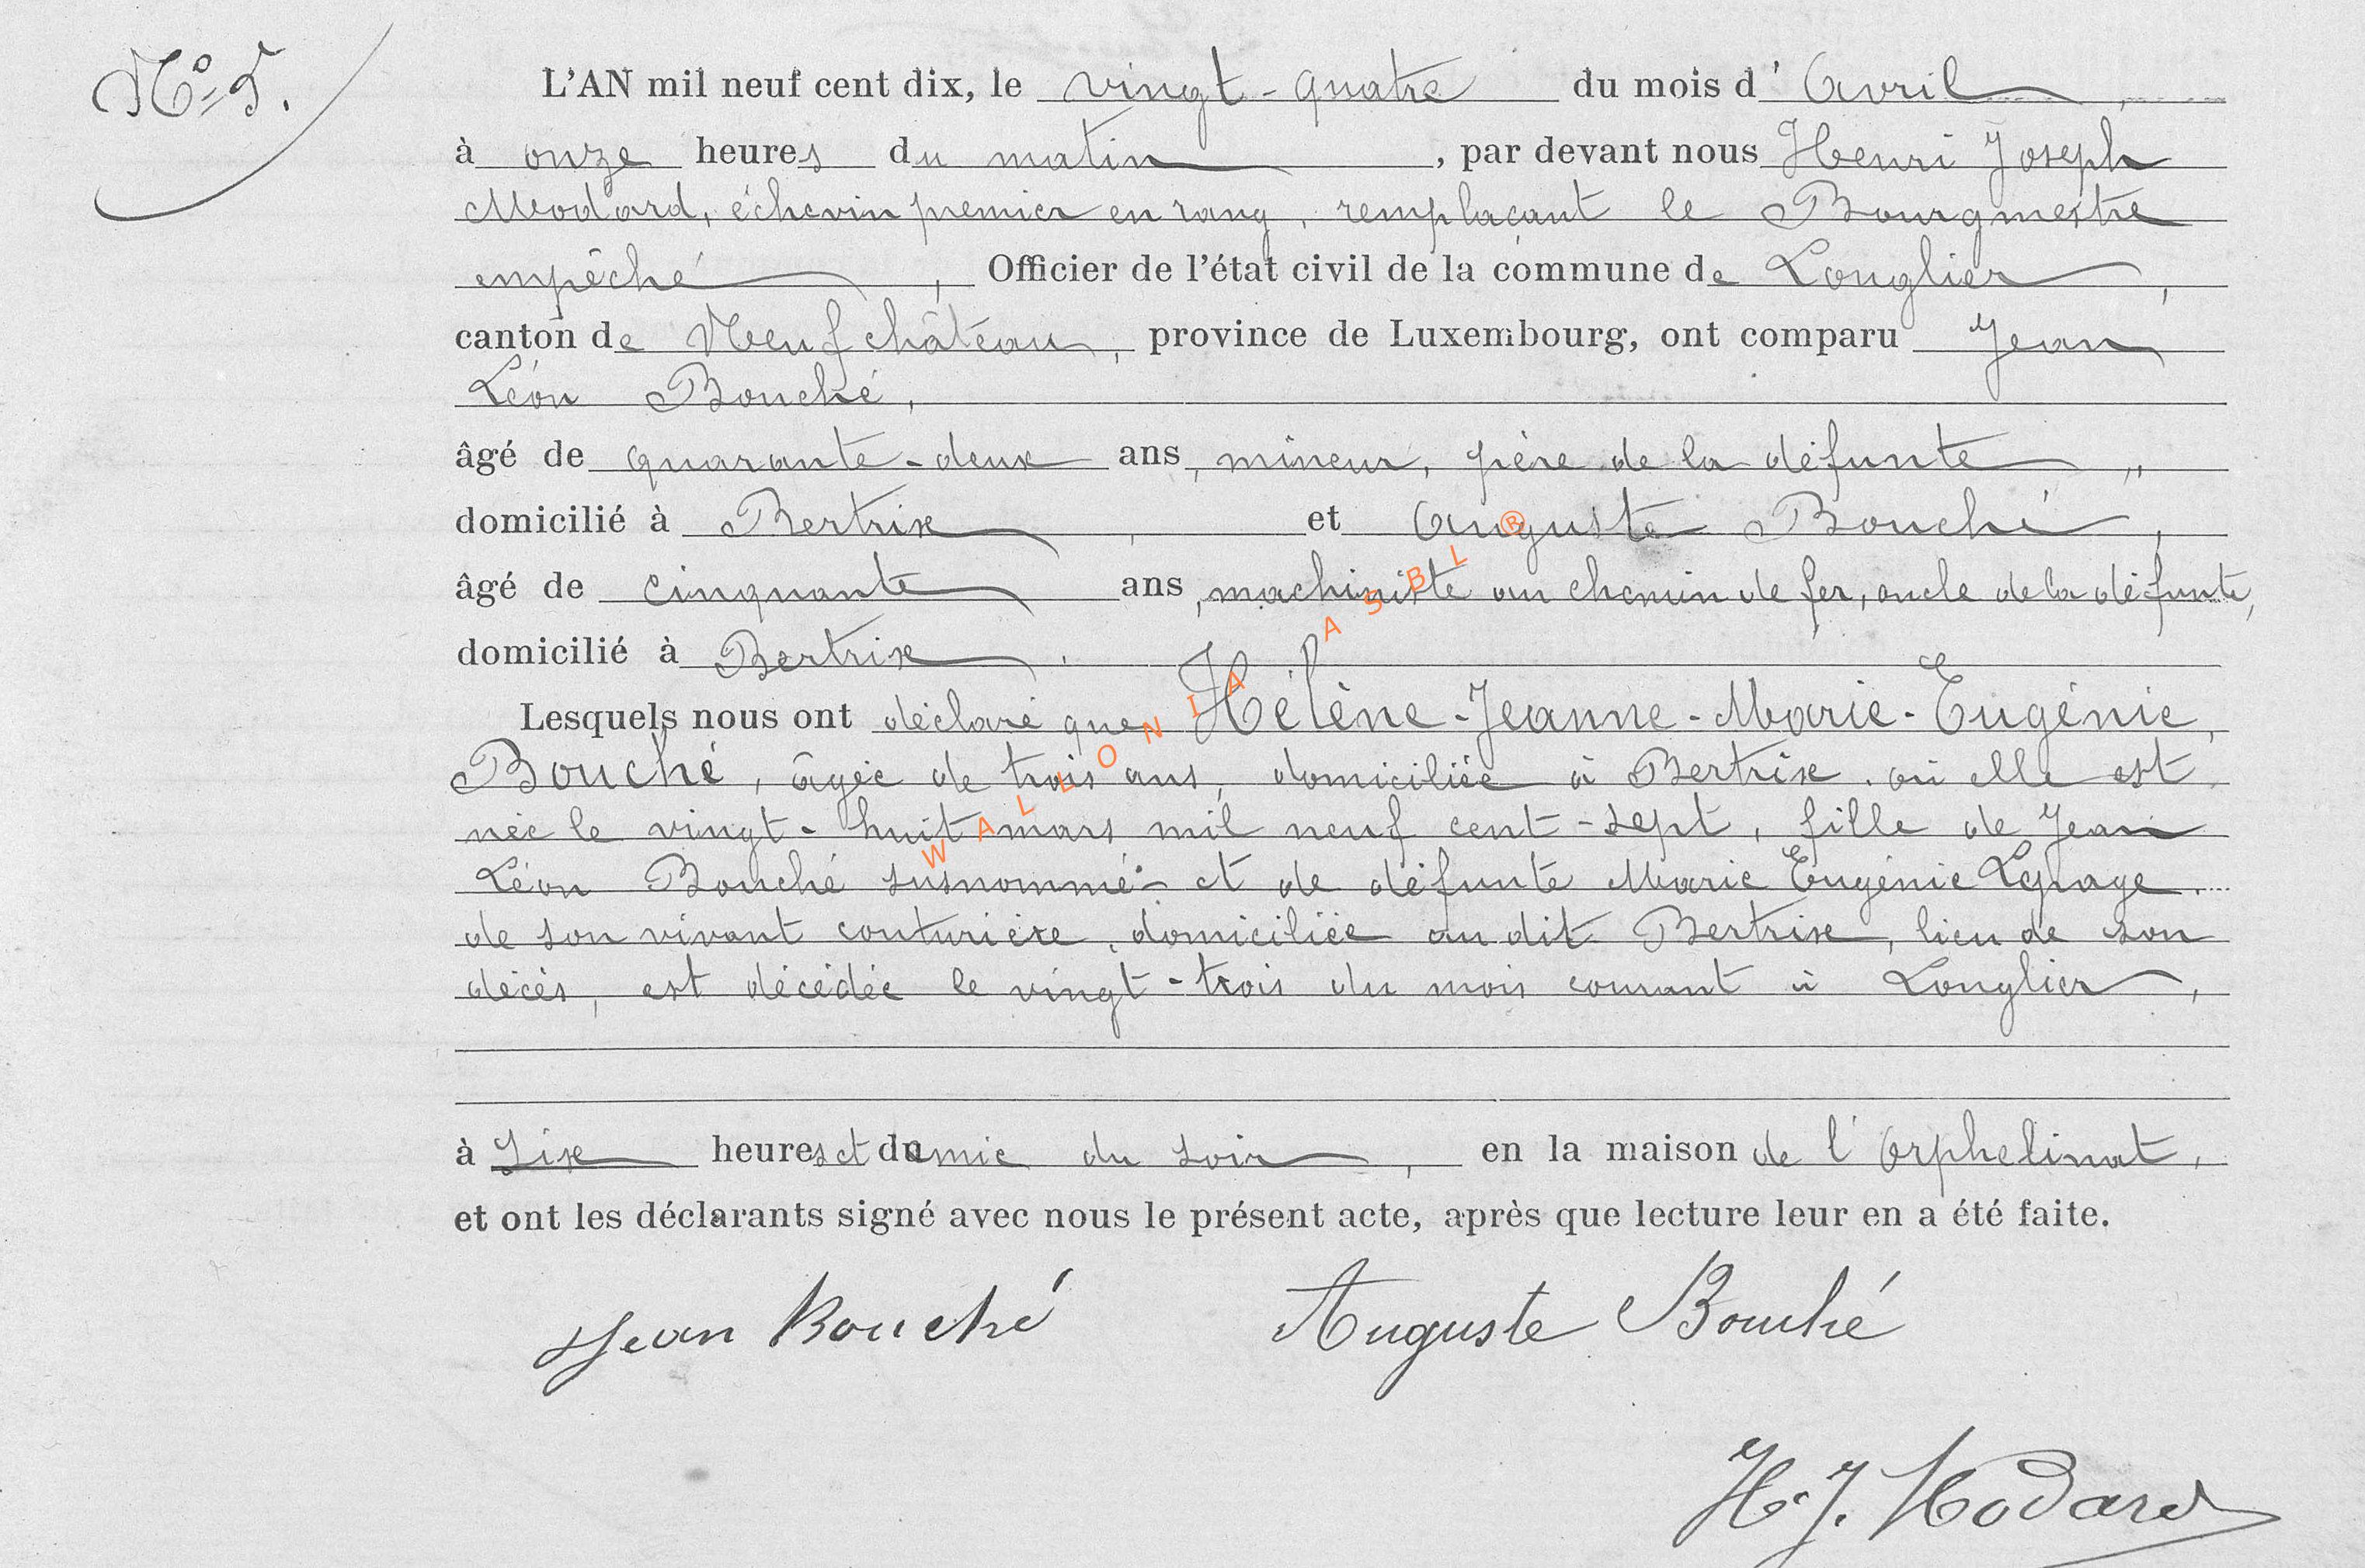 N° 5.
L'AN mil neuf cent dix, le vingt-quatre du mois d'Avril,
à onze heures du matin, par devant nous Henri Joseph
Modard, échevin premier en rang, remplaçant le Bourgmestre
empêché, Officier de l'état civil de la commune de Longlier,
canton de Neufchâteau, province de Luxembourg, ont comparu Jean
Léon Bouché,
âgé de quarante-deux ans, mineur, père de la défunte,,
domicilié à Bertrix, et Auguste Bouché,
âgé de cinquante ans, machiniste au chemin de fer, oncle de la défunte,
domicilié à Bertrix.
Lesquels nous ont déclaré que Hélène-Jeanne-Marie-Eugénie,
Bouché, âgée de trois ans, domiciliée à Bertrix, où elle est
née le vingt-huit mars mil neuf cent-sept, fille de Jean
Léon Bouché susnommé et de défunte Marie Eugénie Lepage.
de son vivant couturière, domiciliée au dit Bertrix, lieu de son
décès, est décédée le vingt-trois du mois courant à Longlier,
à six heures et demie du soir, en la maison de l'Orphelinat,
et ont les déclarants signé avec nous le présent acte, après que lecture leur en a été faite.
Jean Bouché Auguste Bouché
H. J. Modard
WALLONIA ASBL ®